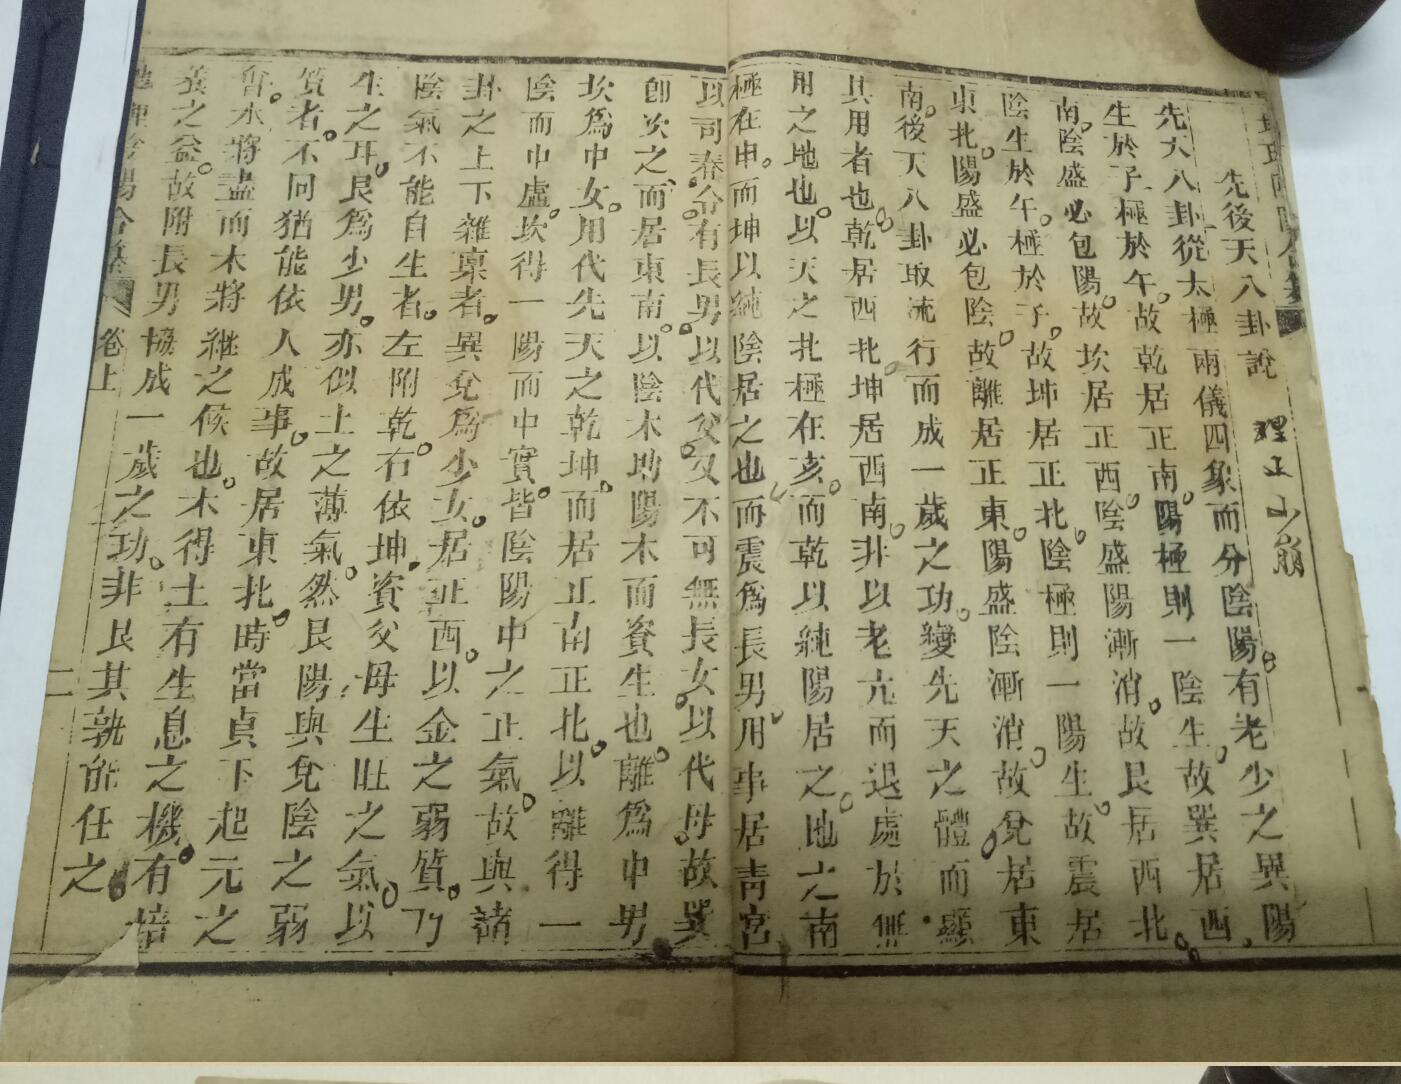 先後天八卦說
理正山崩
先天八卦從太極兩儀四象而分陰陽有老少之異陽
生於子極於午故乾居正南陽極則一陰生故巽居西
南陰盛必包陽故坎居正西陰盛陽漸消故艮居西北
陰生於午極於子故坤居正北陰極則一陽生故震居
東北陽盛必包陰故離居正東陽盛陰漸消故兌居東
南後天八卦取流行而成一歲之功變先天之體而顯
其用者也乾居西北坤居西南非以老亢而退處於無
用之地也以天之北極在亥而乾以純陽居之地之南
極在申而坤以純陰居之也而震爲長男用事居靑宮
以司春令有長男以代父又不可無長女以代母故巽
卽次之而居東南以陰木助陽木而資生也離爲中男
坎爲中女用代先天之乾坤而居正南正北以離得一
陰而中虛坎得一陽而中實皆陰陽中之正氣故與諸
卦之上下雜稟者異兌爲少女居正西以金之弱質乃
陰氣不能自生者左附乾右依坤資父母生旺之氣以
生之耳艮爲少男亦似土之薄氣然艮陽與兌陰之弱
質者不同猶能依人成事故居東北時當貞下起元之
會水將盡而木將繼之候也木得土有生息之機有培
養之益故附長男協成一歲之功非艮其孰能任之
地理陰陽合纂
卷上
二